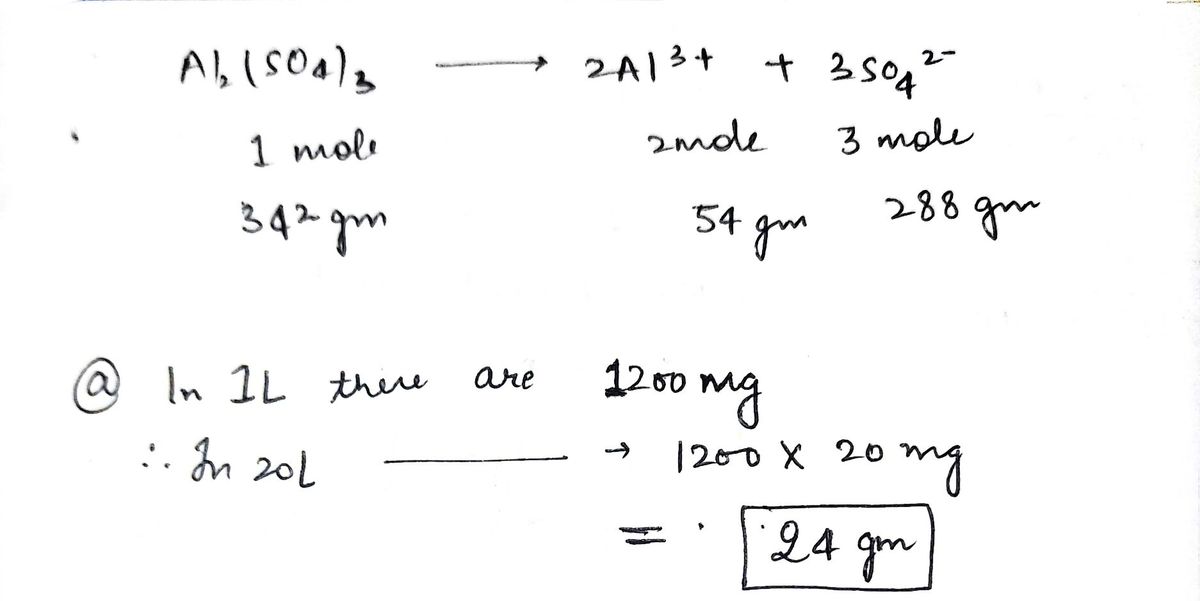 Al₂(SO₄)₃ ⟶ 2Al³⁺ + 3SO₄²⁻
1 mole 2mole 3 mole
342 gm 54 gm 288 gm
ⓐ In 1L there are 1200 mg
∴ In 20L ⟶ 1200 X 20 mg
= 24 gm